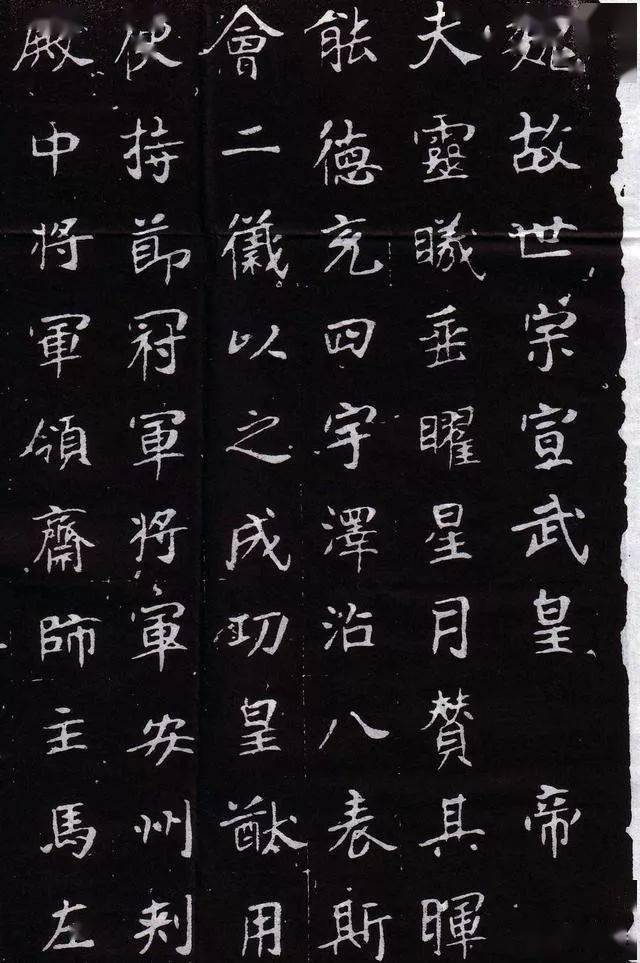 魏故世宗宣武皇帝
夫靈曦垂曜星月賛其暉
能德充四宇澤沿八表斯
會二儀以之成功皇猷用
使持節冠軍將軍安州刾
殿中將軍領齋師主馬左